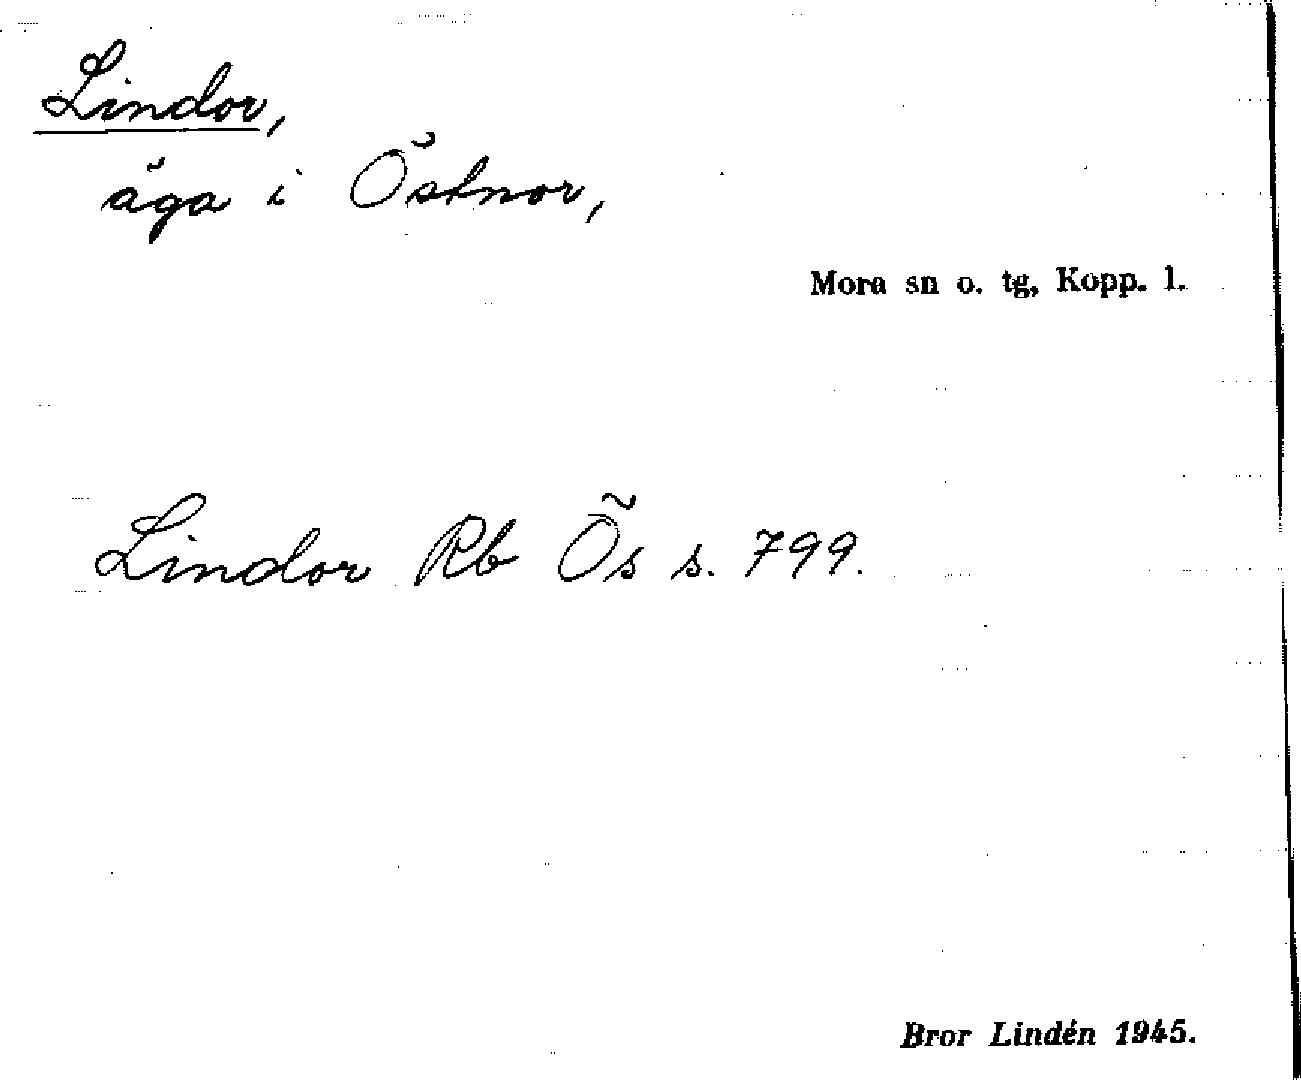 Lindor,
äga i Östnor,
Mora sn o. tg, Kopp. l.
Lindor Rb Ös s. 799.
Bror Lindén 1945.